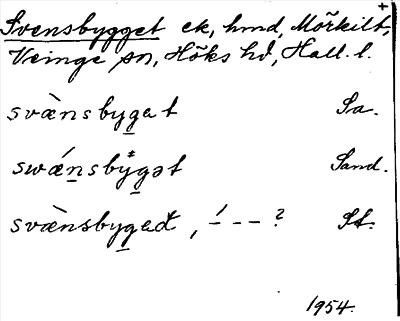 +
Svensbygget ek, hmd, Mörkilt,
Veinge sn, Höks hd, Hall. l.
svæ̀nsbygat Sa.
swǽnsbygət Sand.
svæ̀nsbygađ, –́ – – ? St.
1954.